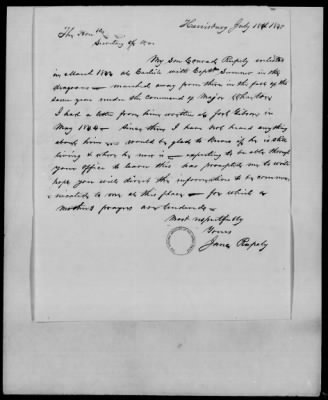 Harrisburg July 18th 1845
The Honble
Secretary of War
My Son Conrad Rapely enlisted
in March 1844 at Carlisle with Capt Sumner in the
dragoons — marched away from there in the fall of the
same year under the command of Major Wharton
I had a letter from him written at Fort Gibson in
May 1844 — Since then I have not heard anything
about him — would be glad to know if he is still
living & where he now is — expecting to be able through
your Office to learn this has prompted me to write
hope you will direct the information to be commu-
nicated to me at this place — for which a
mothers prayers are tendered —
Most respectfully
Yours
Jane Rapely